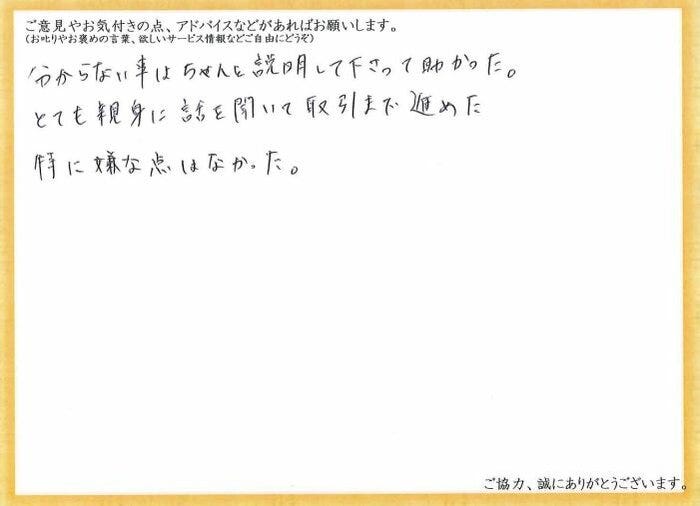 ご意見やお気付きの点、アドバイスなどがあればお願いします。
(お叱りやお褒めの言葉、欲しいサービス情報などご自由にどうぞ)
分からない事はちゃんと説明して下さって助かった。
とても親身に話を聞いて取引まで進めた
特に嫌な点はなかった。
ご協力、誠にありがとうございます。